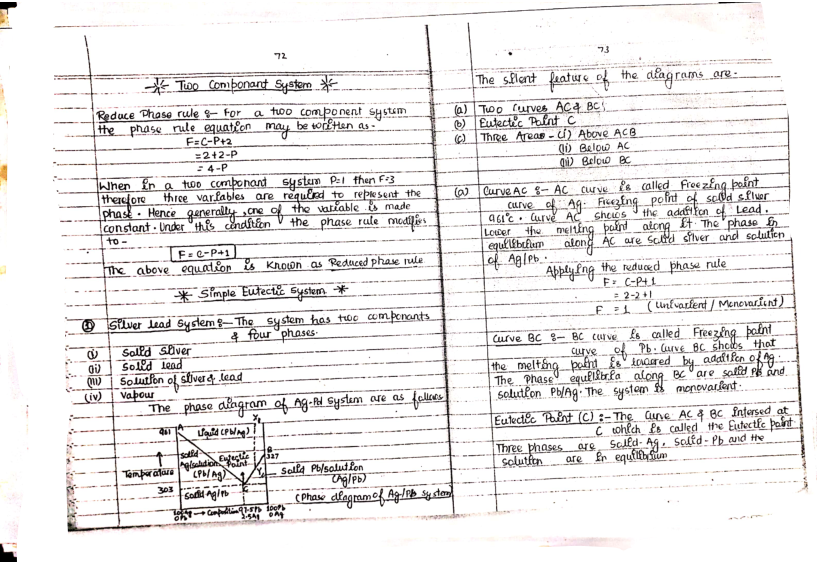 72
Two Componant System
Reduce Phase rule :- For a two component system
the phase rule equation may be written as -
F=C-P+2
=2+2-P
=4-P
When in a two componant system P=1 then F=3
therefore three variables are required to represent the
phase. Hence generally, one of the variable is made
constant. Under this condition the phase rule modifies
to -
F = C-P+1
The above equation is known as Reduced phase rule
Simple Eutectic System
① Silver lead System :- The system has two componants
& four phases.
(i) Solid Silver
(ii) Solid lead
(iii) Solution of silver & lead
(iv) Vapour
The phase diagram of Ag-Pd system are as follows
961 A
Liquid (Pb/Ag)
Y
Solid Ag/solution (Pb/Ag)
Eutectic Point
B
327
Solid Pb/solution (Ag/Pb)
Temperature
303
Solid Ag/Pb
C
(Phase diagram of Ag-/Pb system)
100Ag 0Pb
Composition
97.5Pb 2.5Ag
100Pb 0Ag
73
The silent feature of the diagrams are -
(a) Two curves AC & BC
(b) Eutectic Point C
(c) Three Areas - (i) Above ACB
(ii) Below AC
(iii) Below BC
(a) Curve AC :- AC curve is called Freezing point
curve of Ag: Freezing point of solid silver
961°c. Curve AC shows the addition of Lead.
Lower the melting point along it The phase in
equilibrium along AC are solid silver and solution
of Ag/Pb.
Applying the reduced phase rule
F = C-P+1
= 2-2+1
F = 1 (Univarient / Monovarient)
Curve BC :- BC curve is called Freezing point
curve of Pb. Curve BC shows that
the melting point is lowered by addition of Ag
The Phase equilibria along BC are solid Pb and
solution Pb/Ag. The system is monovarient.
Eutectic Point (C) :- The Curve AC & BC intersed at
C which is called the Eutectic point
Three phases are Solid-Ag, Solid-Pb and the
solution are in equilibrium